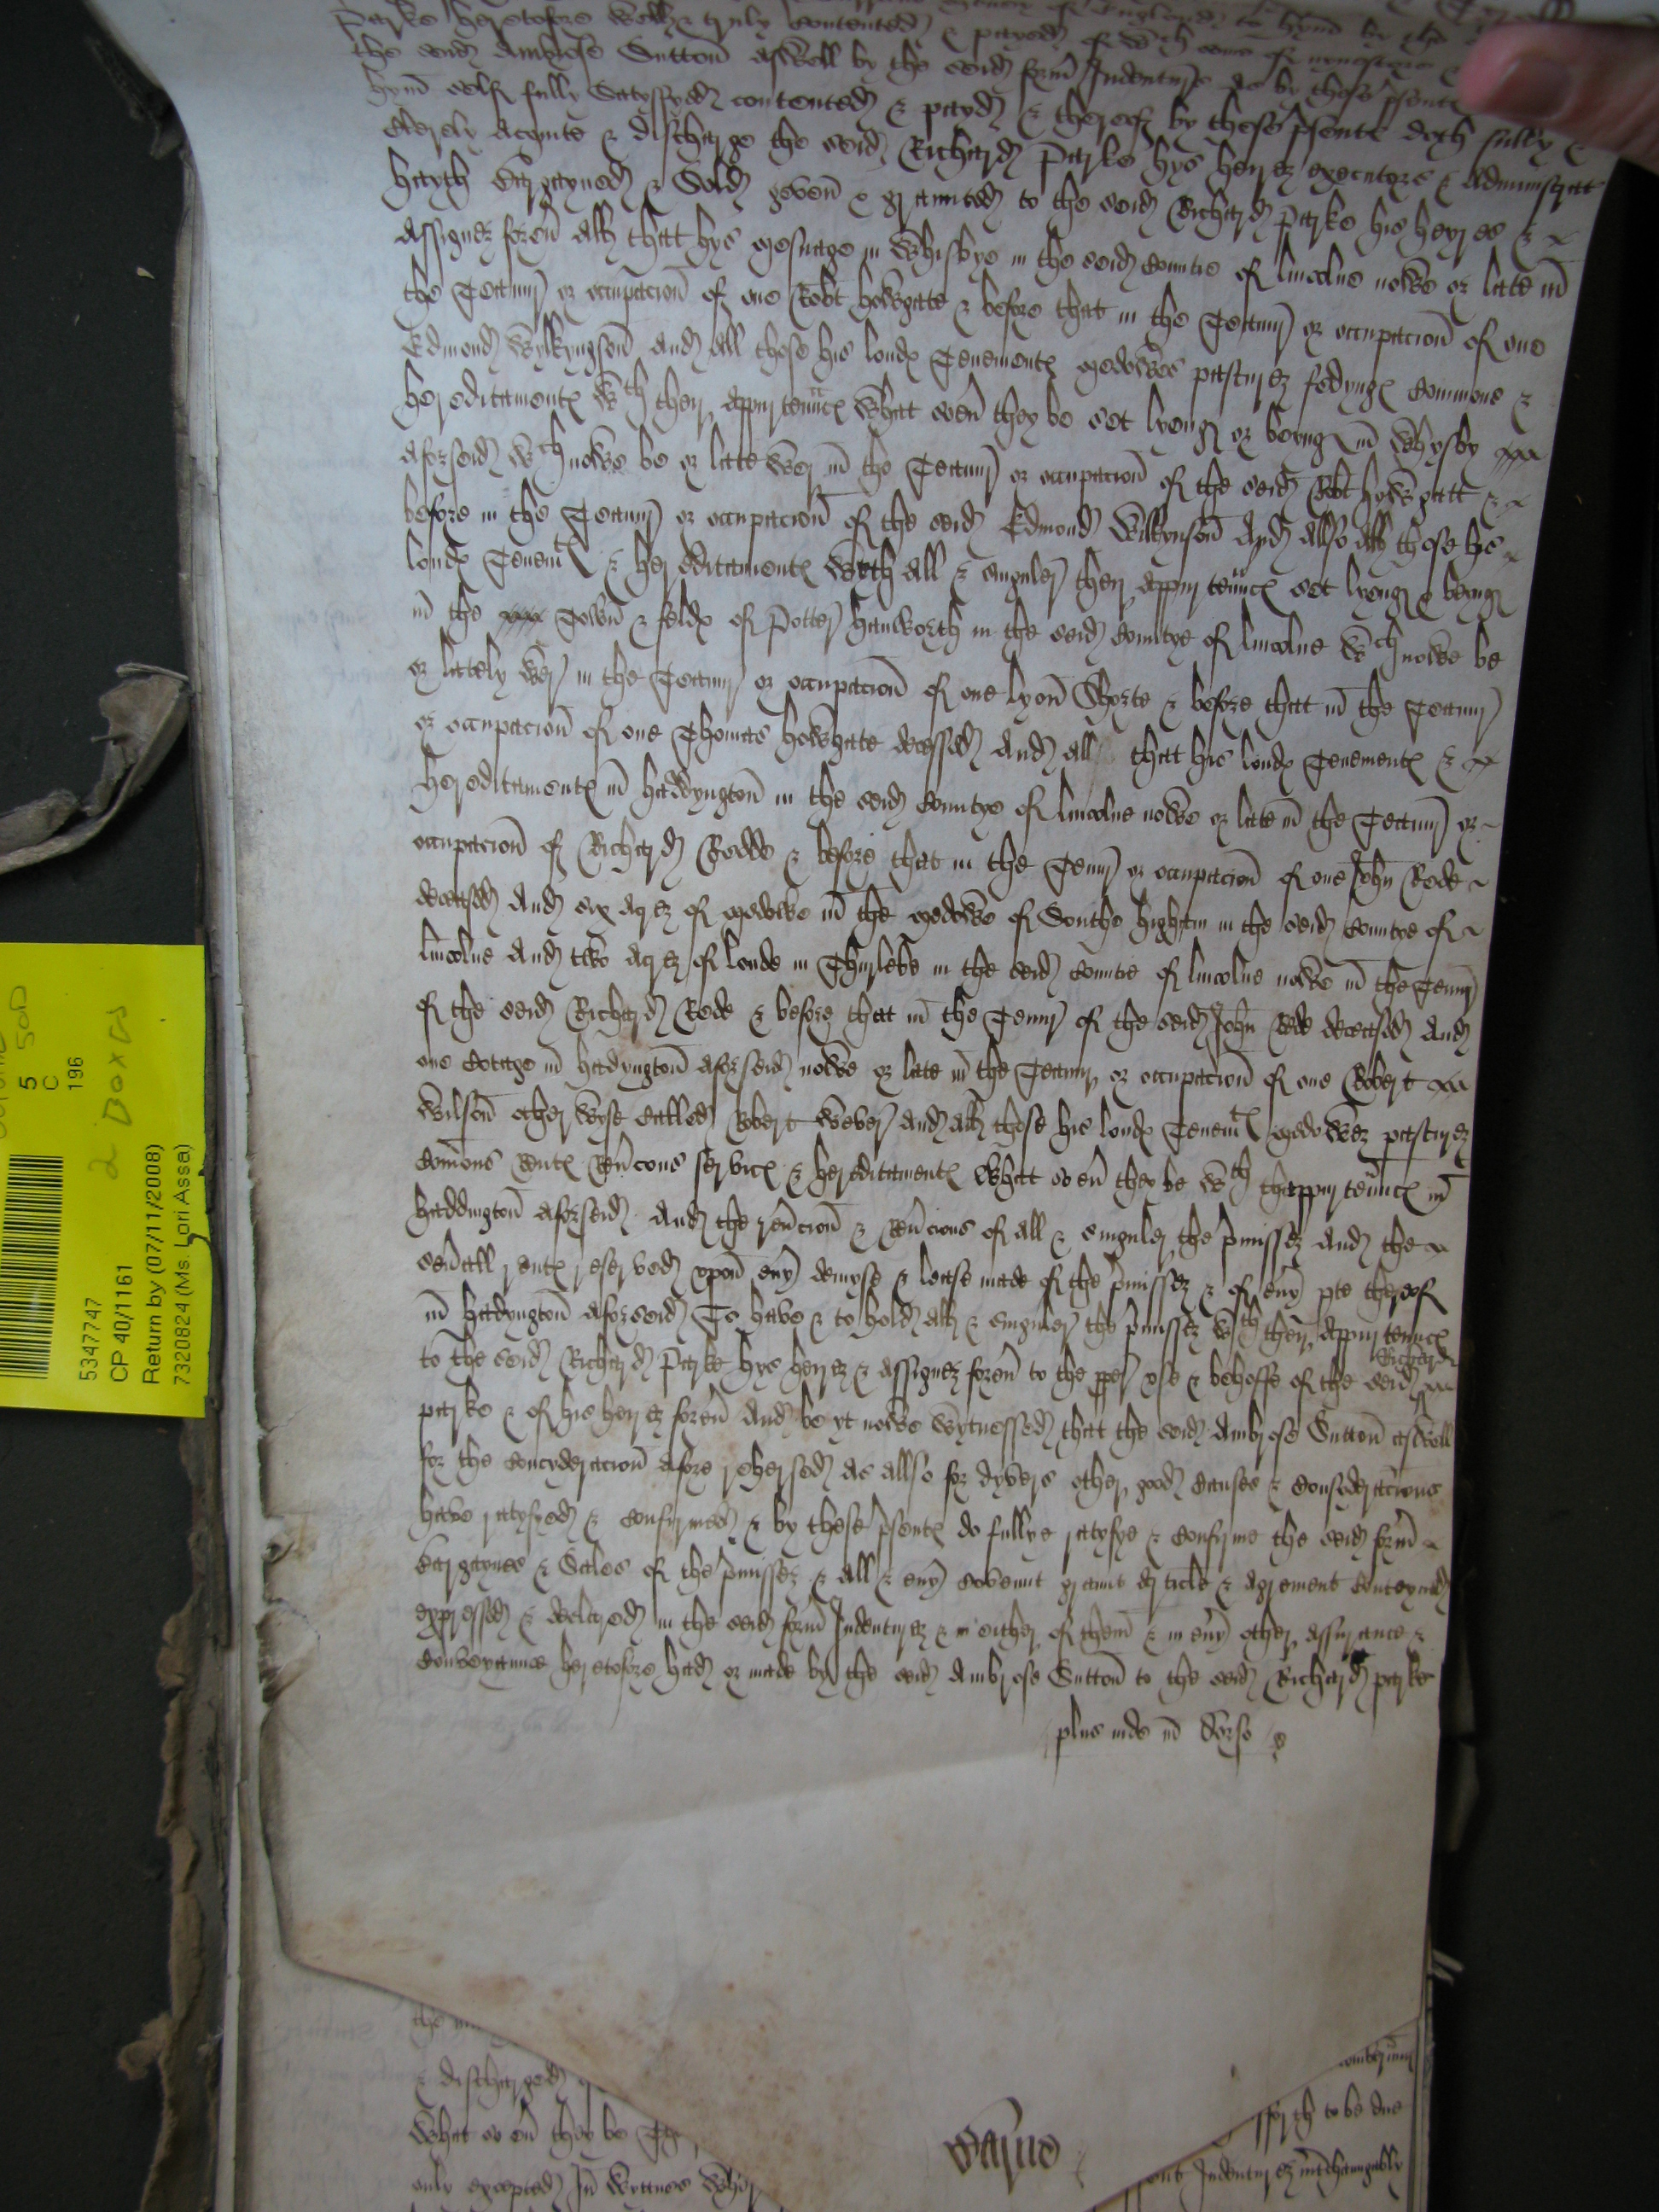 Parke heretofore well & truly contented & payed of wch some of
the seid Ambrose Sutton aswell by the seid form Indenture as by these psente
hym self fully Satysfyed contented & payd & thereof by these psente doth fully &
clerely Acquite & discharge the seid Richard Parke hys heyrez executors & Administrat
hayth bargayned & Sold geven & graunted to the seid Richard Parke his heyres &
Assignez foreu All that hys Mesuage in Whisbye in the seid Countie of lincolne nowe or late in
the Teanur or occupacion of one Robt howgate & before that in the Teanur or occupacion of one
Edmond Wylkyngson And All those his londs Tenements Medowes pasturez fedyngs Commons &
hereditaments wth ther appurtenncs what soeu they be set lyeng or beyng in Whysby
aforseid wch nowe be or late wer in the Teanur or occupacion of the seid Robt howgatt &
before in the Teanur or occupacion of the seid Edmond Wilkynson And Allso All those his
londs Tenemts & heredditaments wyth all & singuler ther appurtenncs set lyeng & beyng
in the Town & felds of Potter hanworth in the seid Countye of lincolne wch nowe be
or lattely wer in the Teanur or occupacion of one lyon Shorte & before that in the Teanur
or occupacion of one Thomas howgate decessed And all that his londs Tenements &
hereditaments in haddyngton in the seid Countye of lincolne nowe or late in the Teanur or
occupacion of Richard Rodde & before that in the Tenur or occupacion of one John Rode
deceased And six Acrez of Medowe in the Medowe of Southe higham in the seid Countye of
lincolne And two Acrez of londe in Thurlebe in the seid Countie of lincolne nowe in the Tenur
of the seid Richard Rode & before that in the Tenur of the seid John Rode deceased And
one Cotage in hadyngton aforseid nowe or late in the Teanur or occupacion of one Robert
Wilson other wyse called Robert Wever And All those his londs Tenemts Medowez pasturez
Comons Rents Reucons servics & hereditaments what soeu they be wth thappurtenncs in
haddington aforseid And the reucion & Reucions of all & singuler the pmissez And the
seuall rents reserved vpon euy demyse & lease made of the pmissez & of euy pte thereof
in hadyngton aforseid To have & to hold all & singuler the pmissez wth ther appurtenncs
to the seid Richard Parke hys heyrez & Assignez foreu to the pper vse & behoffe of the seid Richard
parke & of his heyrez foreu And be yt nowe wytnessed that the seid Ambrose Sutton aswell
for the Concyderacion afore rehersed as allso for dyvers other good Causes & Consideracions
have ratyfyed & Confirmed & by these psents do fullye ratyfye & Confirme the seid form
bargaynes & Sales of the pmissez & all & euy Covennt graunt Article & Agrement Conteyned
expressed & declered in the seid form Indenturez & in either of them & in euy other assurance &
Conveyannce heretofore had or made by the seid Ambrose Sutton to the seid Richard parke
plus inde in dorso
& discharged
What so eu they be
only excepted In wyttnes
fforth to be due
Indenturez intchaungably
5 500
5
C
196
2 Boxes
5347747
CP 40/1161
Return by (07/11/2008)
7320824 (Ms. Lori Assa)